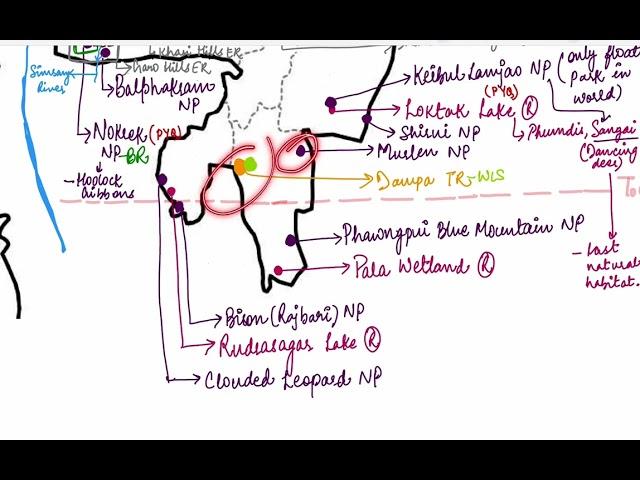 Khasi Hills ER
Garo Hills ER
Simsang
River
Balphakram
NP
Nokrek (PYQ)
NP-BR
- Hoolock
Gibbons
Keibul Lamjao NP
(only float
Park in
world)
(PYQ)
Loktak Lake Ⓡ
Phumdi, Sangai
(Dancing
deer)
Shirui NP
Murlen NP
Dampa TR-WLS
Phawngpui Blue Mountain NP
Pala Wetland Ⓡ
- Last
natural
habitat.
Bison (Rajbari) NP
Rudrasagar Lake Ⓡ
Clouded Leopard NP